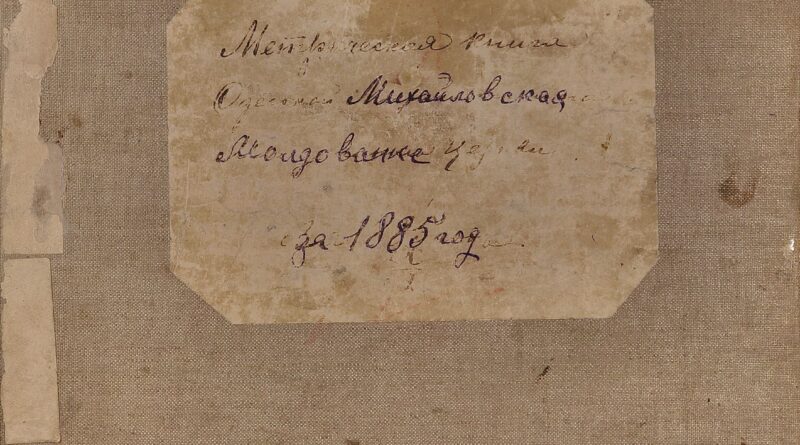 Метрическая книга
Одесской Михайловская
Молдованке церкви
за 1885 год